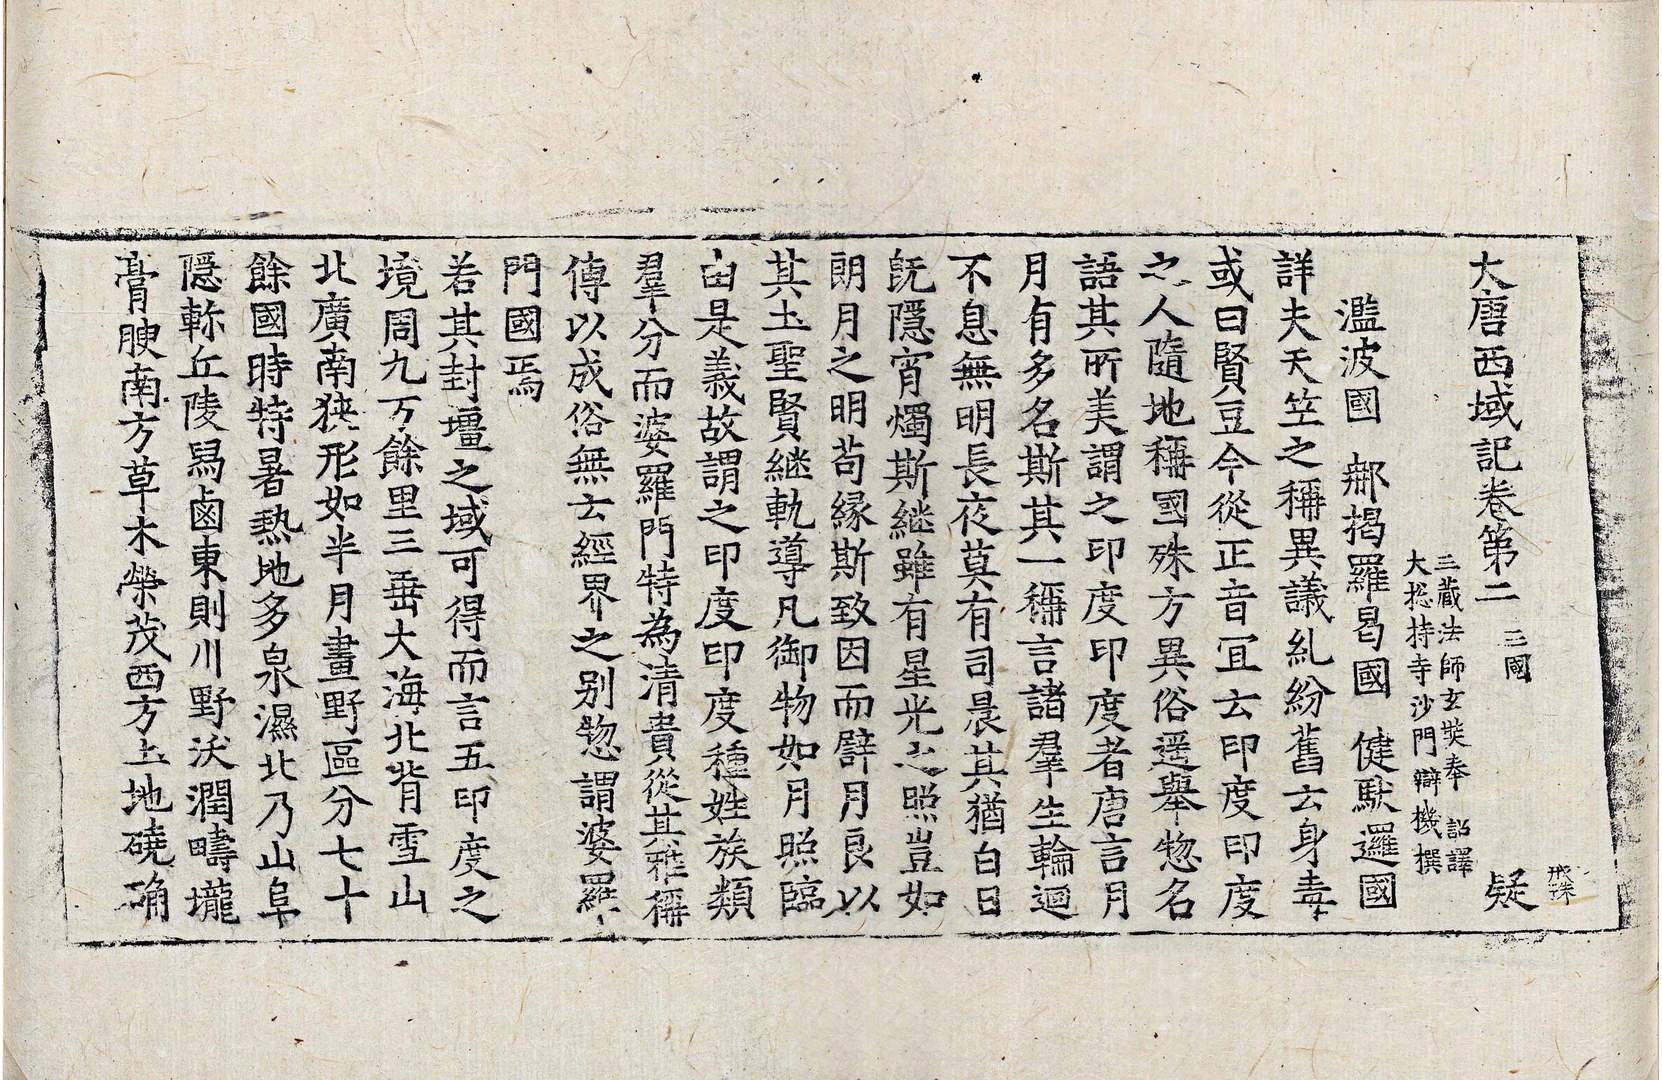 大唐西域記卷第二 三國 疑
三藏法師玄奘奉 詔譯
大揔持寺沙門辯機撰
濫波國 𨚗揭羅曷國 健馱邏國
詳夫天笁之稱異議糺紛舊云身毒
或曰賢豆今從正音冝云印度印度
之人隨地稱國殊方異俗遥舉惣名
語其所美謂之印度印度者唐言月
月有多名斯其一稱言諸羣生輪迴
不息無明長夜莫有司晨其猶白日
旣隱宵燭斯継雖有星光之照豈如
朗月之明苟縁斯致因而譬月良以
其土聖賢継軌導凡御物如月照臨
由是義故謂之印度印度種姓族類
羣分而婆羅門特為清貴從其雅稱
傳以成俗無云經界之别惣謂婆羅
門國焉
若其封壃之域可得而言五印度之
境周九万餘里三垂大海北背雪山
北廣南狹形如半月畫野區分七十
餘國時特暑熱地多泉濕北乃山阜
隱軫丘陵舄鹵東則川野沃潤疇壠
膏腴南方草木榮茂西方土地磽确